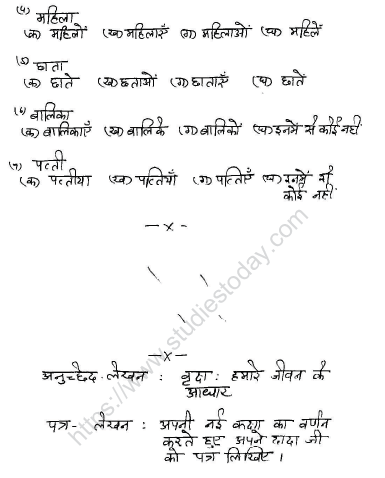 (५) महिला
(क) महिलों (ख) महिलाएँ (ग) महिलाओं (घ) महिलें
छाता
(क) छाते (ख) छताओं (ग) छाताएँ (घ) छातें
(६) बालिका
(क) बालिकाएँ (ख) बालिकें (ग) बालिकों (घ) इनमें से कोई नहीं
(७) पत्ती
(क) पत्तीया (ख) पत्तियाँ (ग) पत्तिएँ (घ) इनमें से
कोई नहीं
—x—
—x—
अनुच्छेद-लेखन : वृक्ष : हमारे जीवन के
आधार
पत्र- लेखन : अपनी नई कक्षा का वर्णन
करते हुए अपने दादा जी
को पत्र लिखिए ।
https://www.studiestoday.com